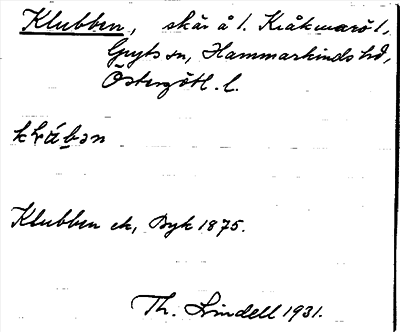 Klubben, skär å l. Kråkmarö l,
Gryts sn, Hammarkinds hd,
Östergötl. l.
Klubben ek, Byk 1875.
Th. Lindell 1931.